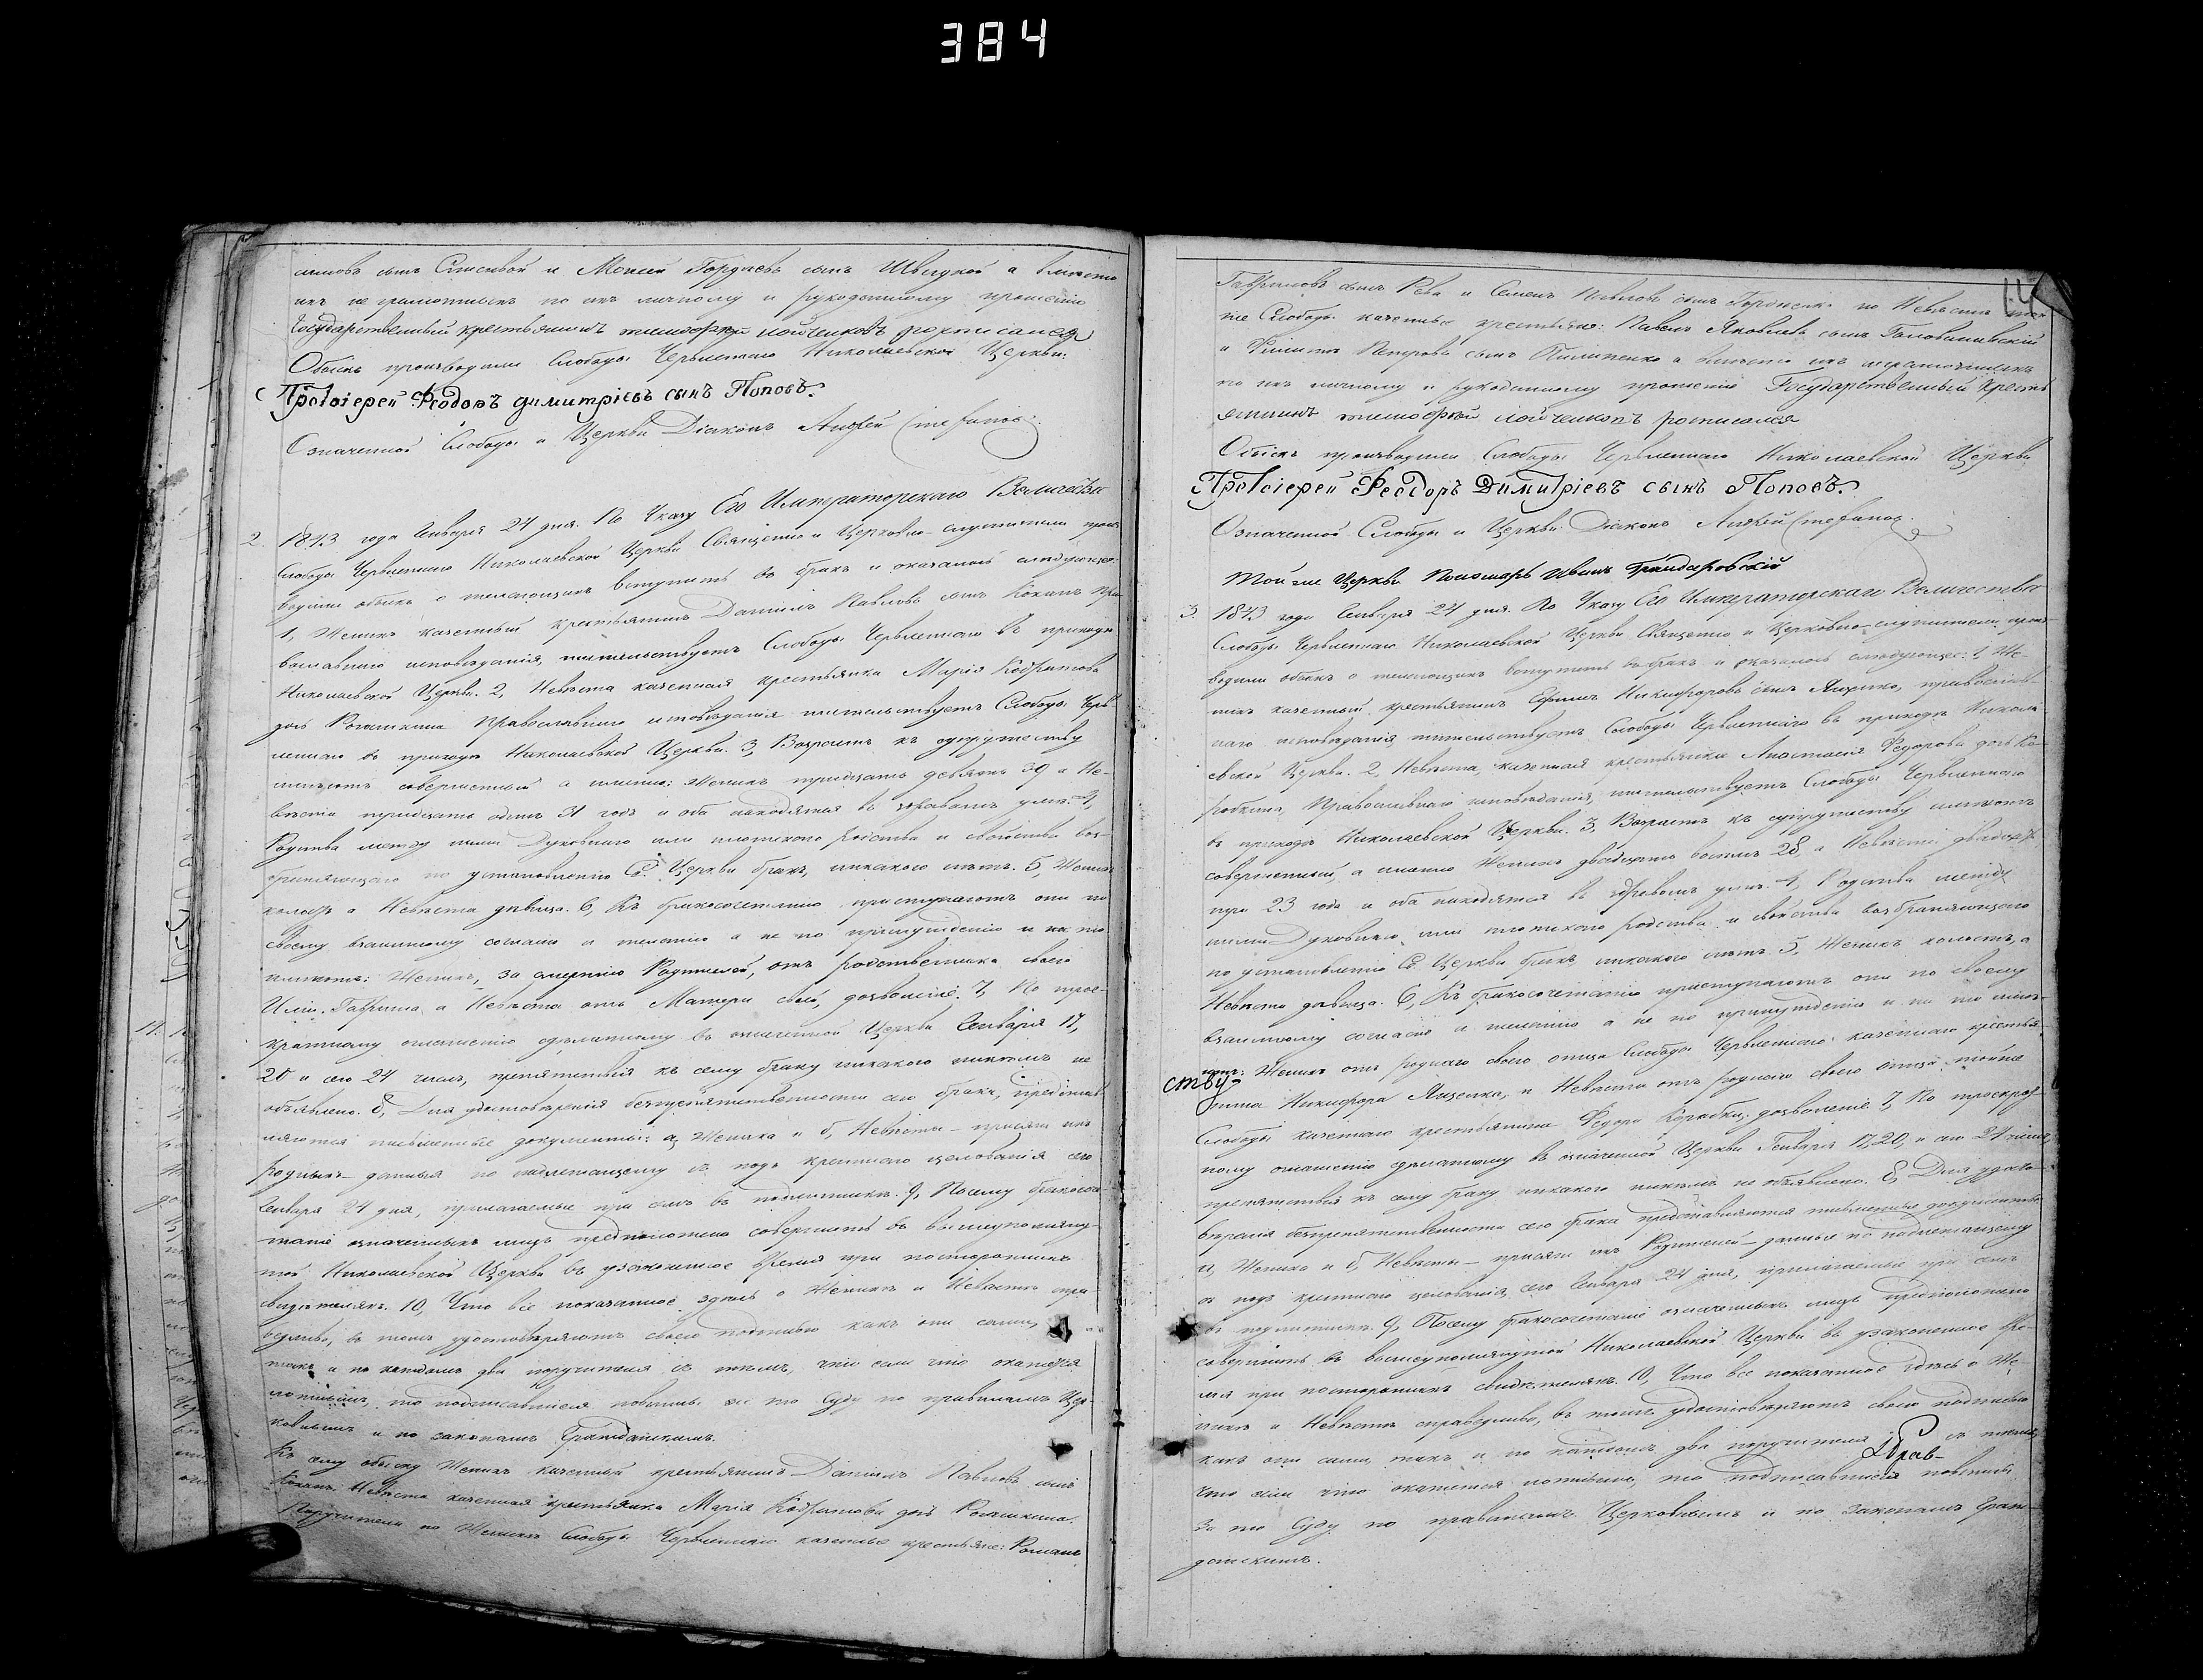 384
сын Спасивой и Моисей Гордѣевъ сынъ Швыдкой а вмѣсто
ихъ не грамотныхъ по ихъ личному и рукоданному прошенію
Государственный крестьянинъ тимофѣй лойченковъ росписался
Обыскъ производили Слободы Червленнаго Николаевской Церкви:
Протоіерей Ѳеодоръ димитріевъ сынъ Поповъ.
Означенной Слободы и Церкви Діаконъ Андрей Стефановъ.
2. 1843 года Генваря 24 дня. По Указу Его Императорскаго Величества
Слободы Червленнаго Николаевской Церкви Священно и Церковно-служители произ-
водили обыскъ о желающихъ вступить въ бракъ и оказалось слѣдующее:
1, Женихъ казенный крестьянинъ Даніилъ Павловъ сынъ Коханъ Пра-
вославнаго исповѣданія, жительствуетъ Слободы Червленнаго въ приходѣ
Николаевской Церкви. 2, Невѣста казенная крестьянка Марія Кодратова
дочь Рогашкина Православнаго исповѣданія жительствуетъ Слободы Черв-
леннаго въ приходѣ Николаевской Церкви. 3, Возрастъ къ супружеству
имѣютъ совершенный а именно: Женихъ тридцать девять 39 а Не-
вѣста тридцать одинъ 31 годъ и оба находятся въ здравомъ умѣ. 4,
Родства между ними Духовнаго или плотскаго родства и свойства воз-
браняющаго по установленію Св. Церкви бракъ, никакого нѣтъ. 5, Женихъ
холостъ а Невѣста дѣвица. 6, Къ бракосочетанію приступаютъ они по
своему взаимному согласію и желанію а не по принужденію и на то
имѣютъ: Женихъ, за смертію Родителей, отъ родственника своего
Гаврила, а Невѣста отъ Матери своей, дозволеніе. 7, По трое-
кратному оглашенію сдѣланному въ означенной Церкви Генваря 17,
20 и сего 24 чиселъ, препятствія къ сему браку никакого никѣмъ не
объявлено. 8, Для удостовѣренія безпрепятственности сего брака, представ-
ляются письменные документы: а, Жениха и б, Невѣсты – присяги ихъ
родныхъ – данныя по надлежащему съ подъ крестнаго целованія сего
Генваря 24 дня, прилагаемые при семъ въ подлинникѣ. 9, Посему бракосоче-
таніе означенныхъ лицъ предположено совершить въ вышеупомяну-
той Николаевской Церкви въ узаконенное время при постороннихъ
свидѣтеляхъ. 10, Что все показанное здѣсь о Женихѣ и Невѣстѣ спра-
ведливо, въ томъ удостовѣряютъ своею подписью какъ они сами,
такъ и по каждомъ два поручителя съ тѣмъ, что если что окажется
ложнымъ, то подписавшіеся повинны за то Суду по правиламъ Цер-
ковнымъ и по законамъ Гражданскимъ.
Къ сему обыску Женихъ казенный крестьянинъ Даніилъ Павловъ сынъ
Коханъ. Невѣста казенная крестьянка Марія Кодратова дочь Рогашкина.
Поручители по Женихѣ Слободы Червленнаго казенные крестьяне: Романъ
Гавриловъ сынъ Рева и Семенъ Павловъ сынъ по Невѣстѣ той
же Слободы казенные крестьяне: Павелъ Яковлевъ сынъ
и Филиппъ Петровъ сынъ Пилипенко а вмѣсто ихъ неграмотныхъ
по ихъ личному и рукоданному прошенію Государственный крест
янинъ тимофѣй лойченковъ росписался
Обыскъ производили Слободы Червленнаго Николаевской Церкви
Протоіерей Ѳеодоръ Димитріевъ сынъ Поповъ.
Означенной Слободы и Церкви Діаконъ Андрей Стефановъ.
Той же Церкви Пономарь Иванъ
3. 1843 года Генваря 24 дня. По Указу Его Императорскаго Величества
Слободы Червленнаго Николаевской Церкви Священно и Церковно-служители произ-
водили обыскъ о желающихъ вступить въ бракъ и оказалось слѣдующее: 1, Же-
нихъ казенный крестьянинъ Ефимъ Никифоровъ сынъ Ященко, православ-
наго исповѣданія, жительствуетъ Слободы Червленнаго въ приходѣ Никола-
евской Церкви. 2, Невѣста, казенная крестьянка Анастасія Федорова дочь Ко-
робкина, Православнаго исповѣданія, жительствуетъ Слободы Червленнаго
въ приходѣ Николаевской Церкви. 3, Возрастъ къ супружеству имѣютъ
совершенный, а именно Женихъ двадцать восемь 28, а Невѣста двадцать
три 23 года и оба находятся въ здравомъ умѣ. 4, Родства между
ними Духовнаго или плотскаго родства и свойства возбраняющаго
по установленію Св. Церкви бракъ, никакого нѣтъ. 5, Женихъ холостъ, а
Невѣста дѣвица. 6, Къ бракосочетанію приступаютъ они по своему
взаимному согласію и желанію а не по принужденію и на то имѣ-
ютъ: Женихъ отъ роднаго своего отца Слободы Червленнаго казеннаго крестья-
ству
нина Никифора Ященка, и Невѣста отъ роднаго своего отца тойже
Слободы казеннаго крестьянина Федора Коробки, дозволеніе. 7, По троекрат-
ному оглашенію сдѣланному въ означенной Церкви Генваря 17, 20, и сего 24 чиселъ
препятствія къ сему браку никакого никѣмъ не объявлено. 8, Для удосто-
вѣренія безпрепятственности сего брака представляются письменные документы:
а, Жениха и б, Невѣсты – присяги ихъ Родителей – данные по надлежащему
съ подъ крестнаго целованія, сего Генваря 24 дня, прилагаемые при семъ
въ подлинникѣ. 9, Посему бракосочетаніе означенныхъ лицъ предположено
совершить въ вышеупомянутой Николаевской Церкви въ узаконенное вре-
мя при постороннихъ свидѣтеляхъ. 10, Что все показанное здѣсь о Же-
нихѣ и Невѣстѣ справедливо, въ томъ удостовѣряютъ своею подписью
какъ они сами, такъ и по каждомъ два поручителя съ тѣмъ,
что если что окажется ложнымъ, то подписавшіеся повинны
за то Суду по правиламъ Церковнымъ и по законамъ Граж-
данскимъ.